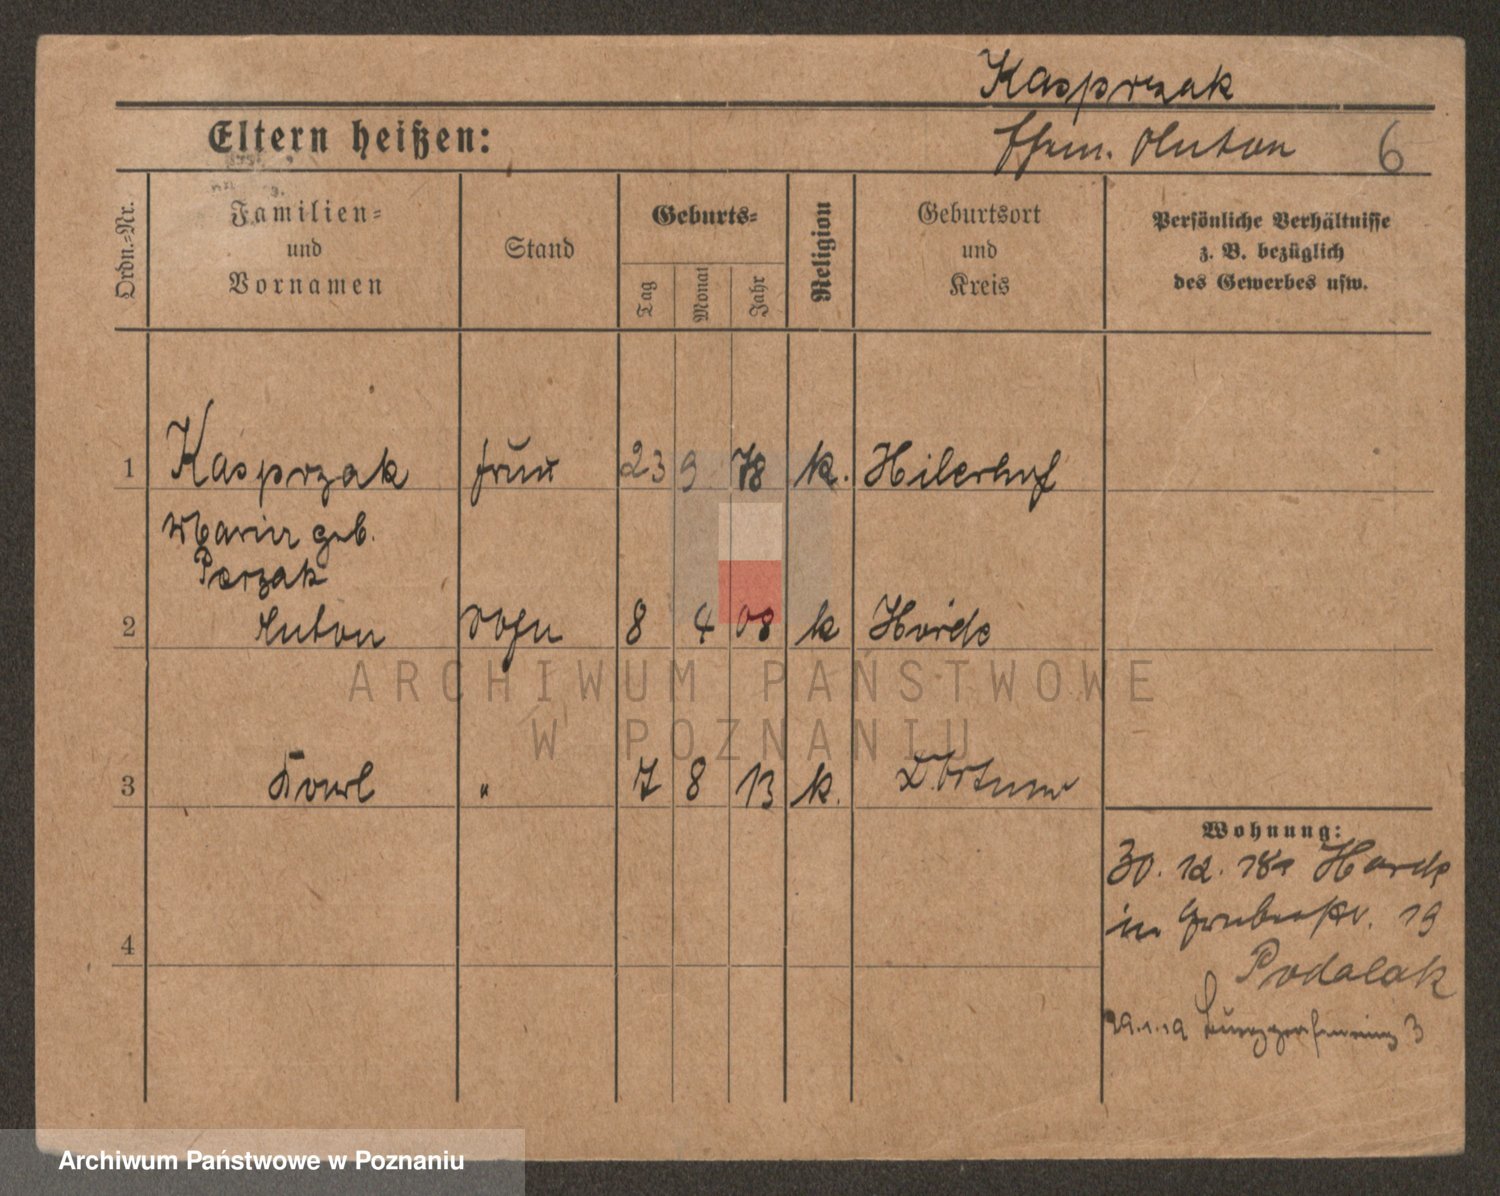 Kasprzak
Eltern heißen:
Ehem. Anton 6
Ordn.=Nr.
Familien=
und
Vornamen
Stand
Geburts=
Tag
Monat
Jahr
Religion
Geburtsort
und
Kreis
Persönliche Verhältnisse
z. B. bezüglich
des Gewerbes usw.
1 Kasprzak frau 23 9 78 k. Hilerhof
Maria geb.
2 Anton Sohn 8 4 08 k Hörde
3 Karl " 7 8 13 k. Dortmund
4
Wohnung:
30. 12. 18 Hörde
in 19
Podalak
29.1.19 3
ARCHIWUM PAŃSTWOWE
W POZNANIU
Archiwum Państwowe w Poznaniu